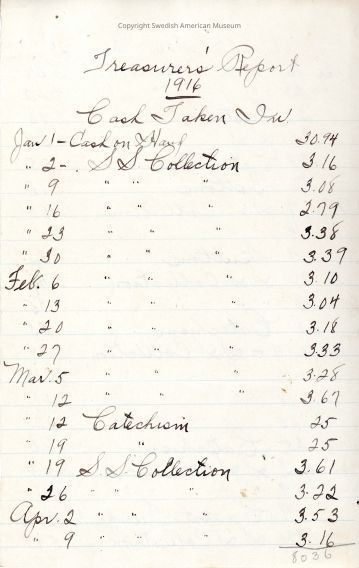 Copyright Swedish American Museum
Treasurers' Report
1916
Cash Taken In
Jan 1 - Cash on Hand 30.94
" 2 - . S S Collection 3.16
" 9 " " " 3.08
" 16 " " " 2.79
" 23 " " " 3.38
" 30 " " " 3.39
Feb. 6 " " " 3.10
" 13 " " " 3.04
" 20 " " " 3.18
" 27 " " " 3.33
Mar. 5 " " " 3.28
" 12 " " " 3.67
" 12 Catechism 25
" 19 " 25
" 19 S S Collection 3.61
" 26 " " " 3.22
Apr. 2 " " " 3.53
" 9 " " " 3.16
8036